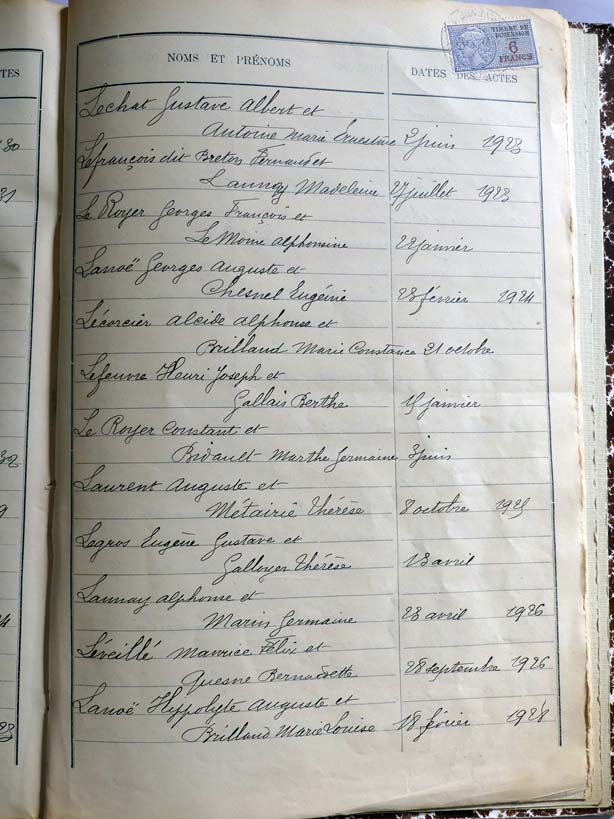 TES
NOMS ET PRÉNOMS
DATES DES ACTES
TIMBRE DE
DIMENSION
6
FRANCS
Lechat Gustave Albert et
Antoine Marie Ernestine 2 juin 1923
Lefrançois dit Breton Fernand et
Launay Madeleine 27 juillet 1923
Le Royer Georges François et
Le Moine Alphonsine 22 janvier
Lanoë Georges Auguste et
Chesnel Eugénie 23 février 1924
Lécorcier Alcide Alphonse et
Brilland Marie Constance 21 octobre
Lefeuvre Henri Joseph et
Gallais Berthe janvier
Le Royer Constant et
Bidault Marthe Germaine 3 juin
Laurent Auguste et
Métairie Thérèse 8 octobre 1925
Legros Eugène Gustave et
Galloyer Thérèse 13 avril
Launay Alphonse et
Marin Germaine 23 avril 1926
Léveillé Maurice Félix et
Quesne Bernadette 28 septembre 1926
Lanoë Hippolyte Auguste et
Brilland Marie Louise 18 février 1928